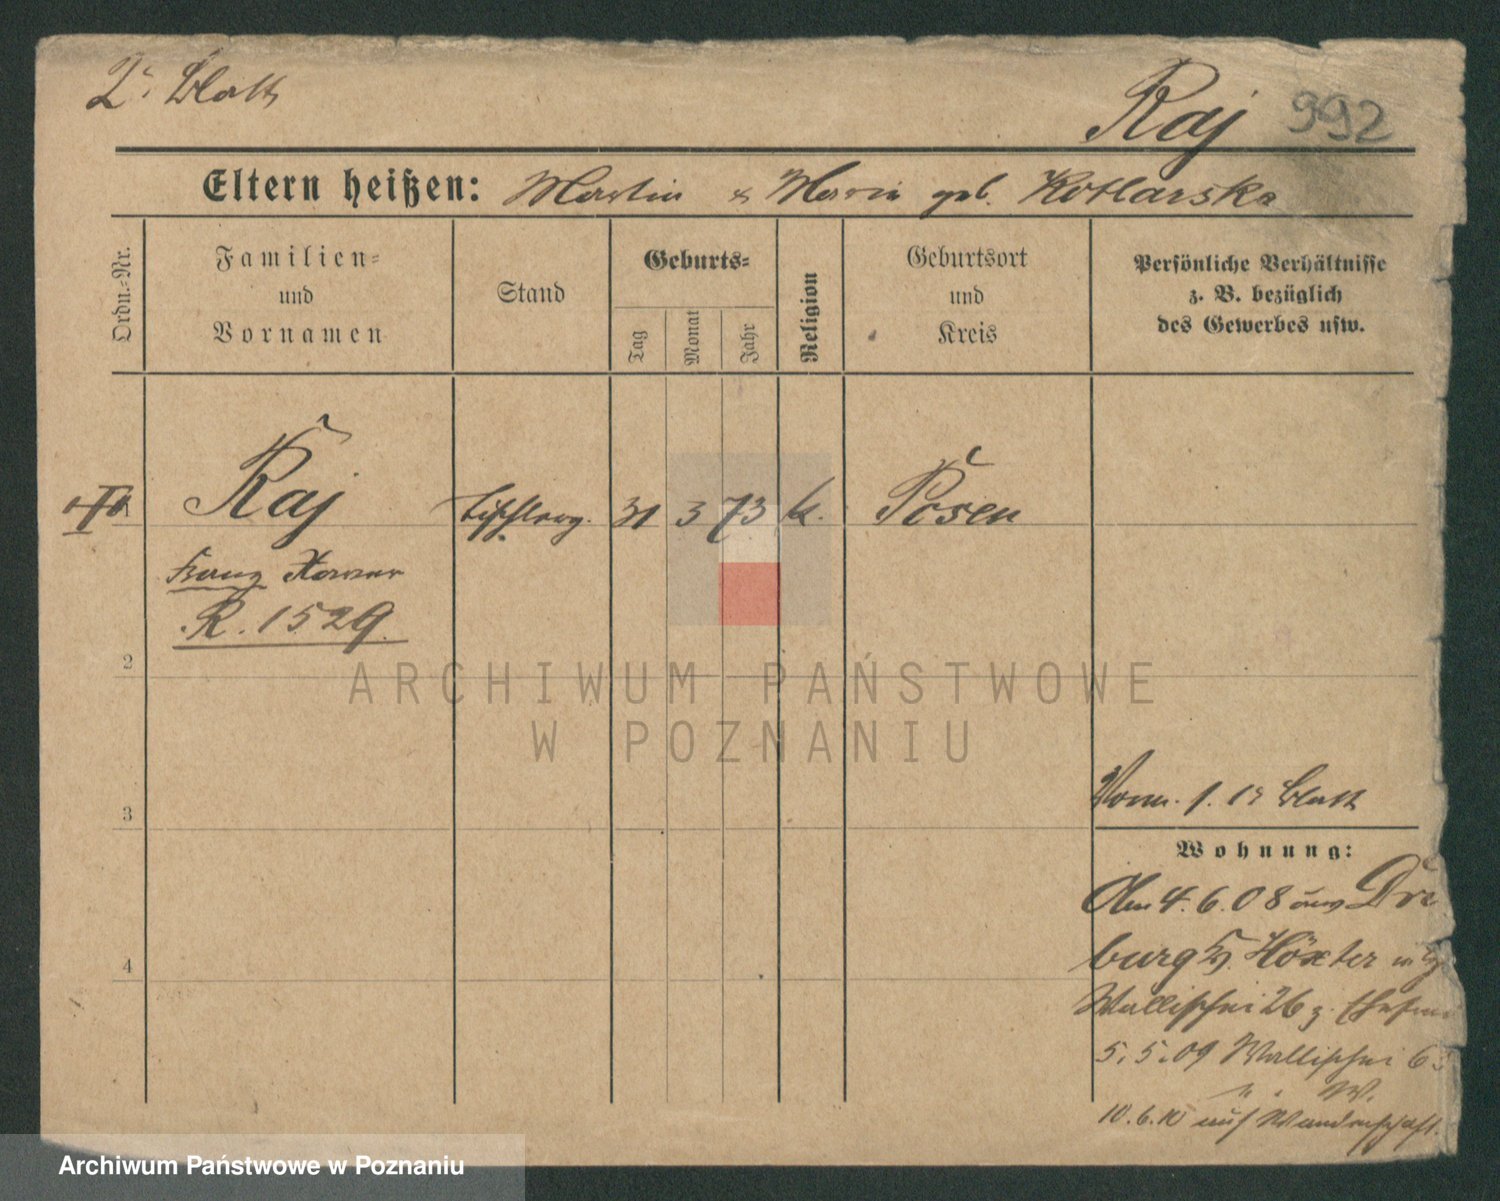 2. Blatt
Raj 992
Eltern heißen: Martin & Maria geb. Kotlarska
Ordn.-Nr.
Familien-
und
Vornamen
Stand
Geburts-
Tag
Monat
Jahr
Religion
Geburtsort
und
Kreis
Persönliche Verhältnisse
z. B. bezüglich
des Gewerbes usw.
Raj
31 3 73 k. Posen
Franz
R. 1529.
2
ARCHIWUM PAŃSTWOWE
W POZNANIU
3
1. Blatt
Wohnung:
Am 4.6.08 aus Dri
burg Kr. Höxter
Wallischei 26 z.
5.5.09 Wallischei 6
4
10.6.10 auf Wanderschaft.
Archiwum Państwowe w Poznaniu